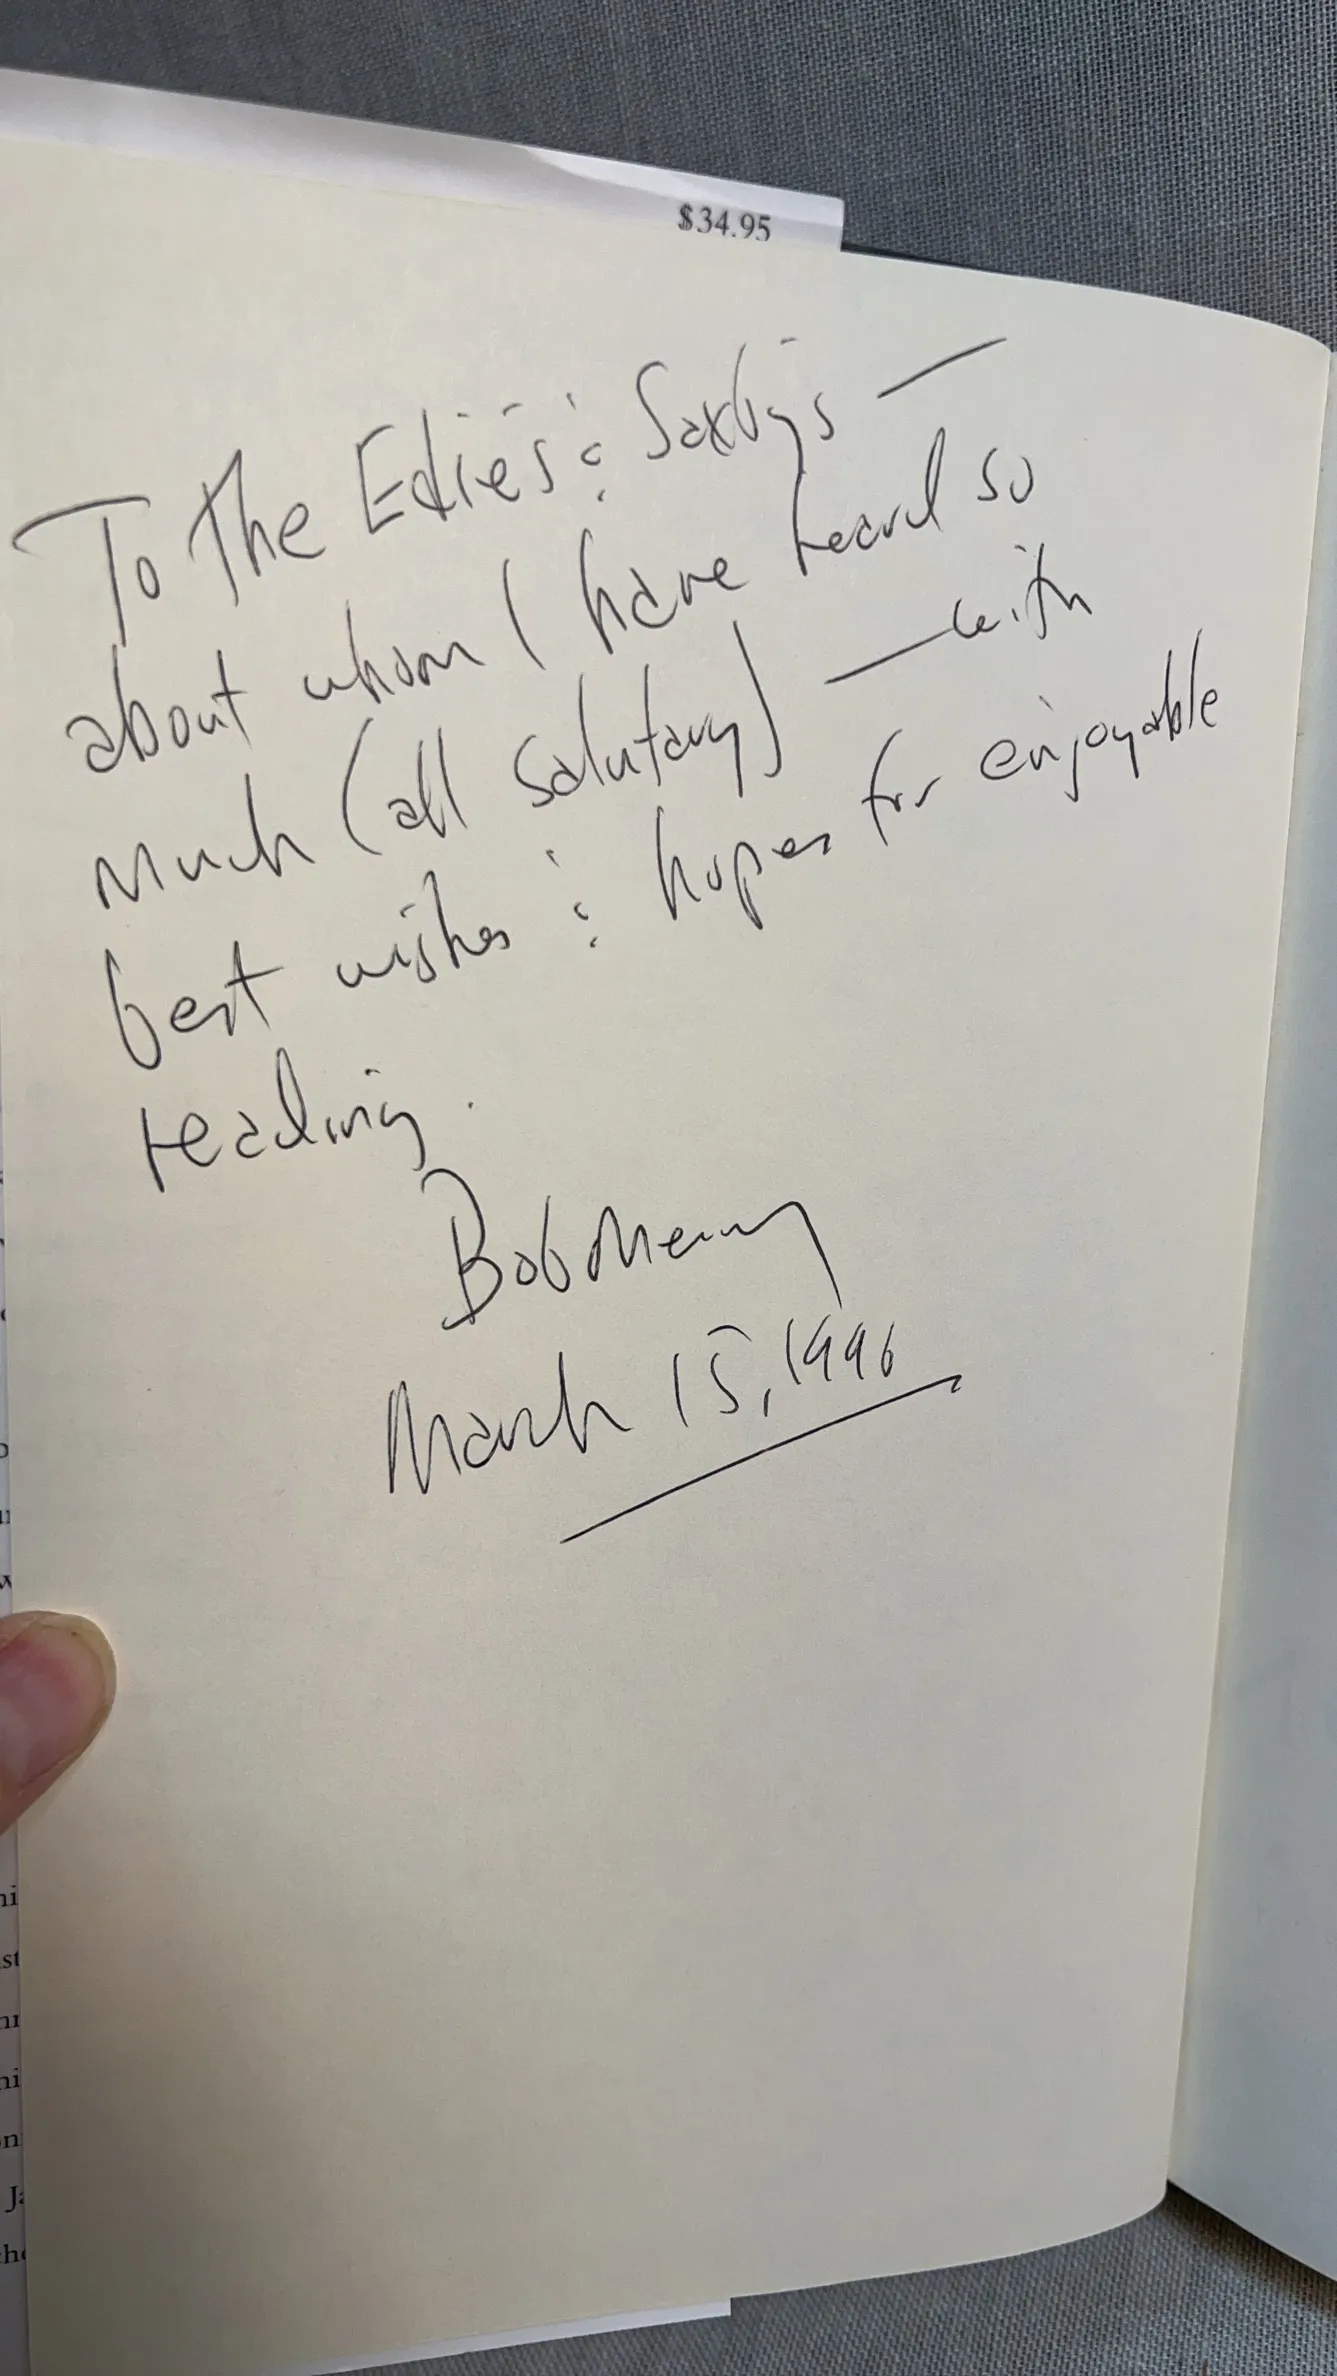 $34.95
To the Edie's & Saxbys —
about whom I have heard so
much (all salutary) — with
best wishes & hopes for enjoyable
reading.
Bob
March 15, 1996